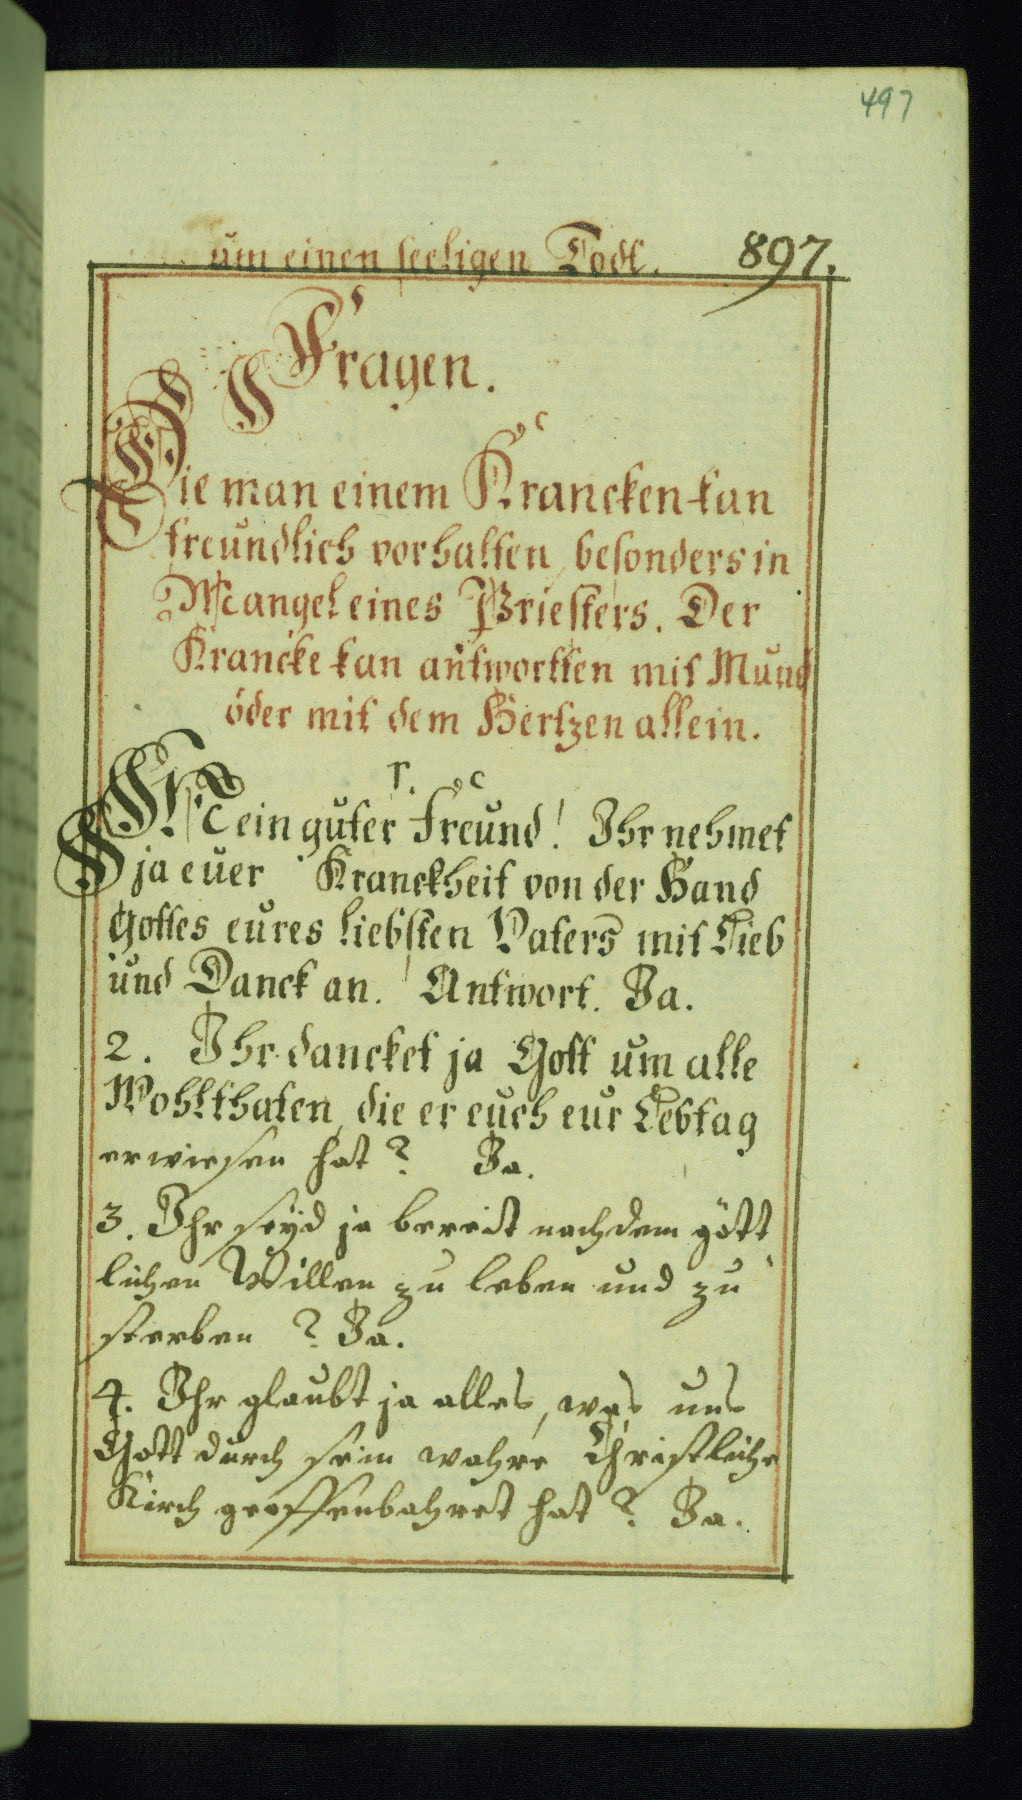 497
um einen seeligen Todt. 897.
Fragen.
Die man einem Krancken kan
freundlich vorhalten, besonders in
Mangel eines Priesters. Der
Krancke kan antwortten mit Mund
oder mit dem Hertzen allein.
1.
Mein guter Freund! Ihr nehmet
ja euer Kranckheit von der Hand
Gottes eures liebsten Vaters mit Lieb
und Danck an. Antwort. Ja.
2. Ihr dancket ja Gott um alle
Wohlthaten, die er euch eur Lebtag
erwiesen hat? Ja.
3. Ihr seyd ja bereit nach dem gött
lichen Willen zu leben und zu
sterben? Ja.
4. Ihr glaubt ja alles, was uns
Gott durch sein wahre Christliche
Kirch geoffenbahret hat? Ja.